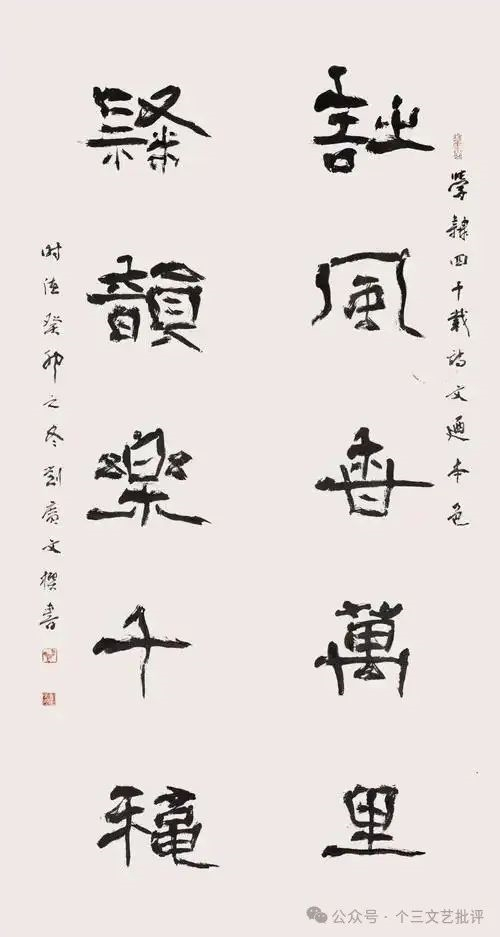 學隸四十載詩文迺本色
詩風香萬里
隸韻樂千穐
时值癸卯之冬劉廣文撰書
公众号 · 个三文艺批评